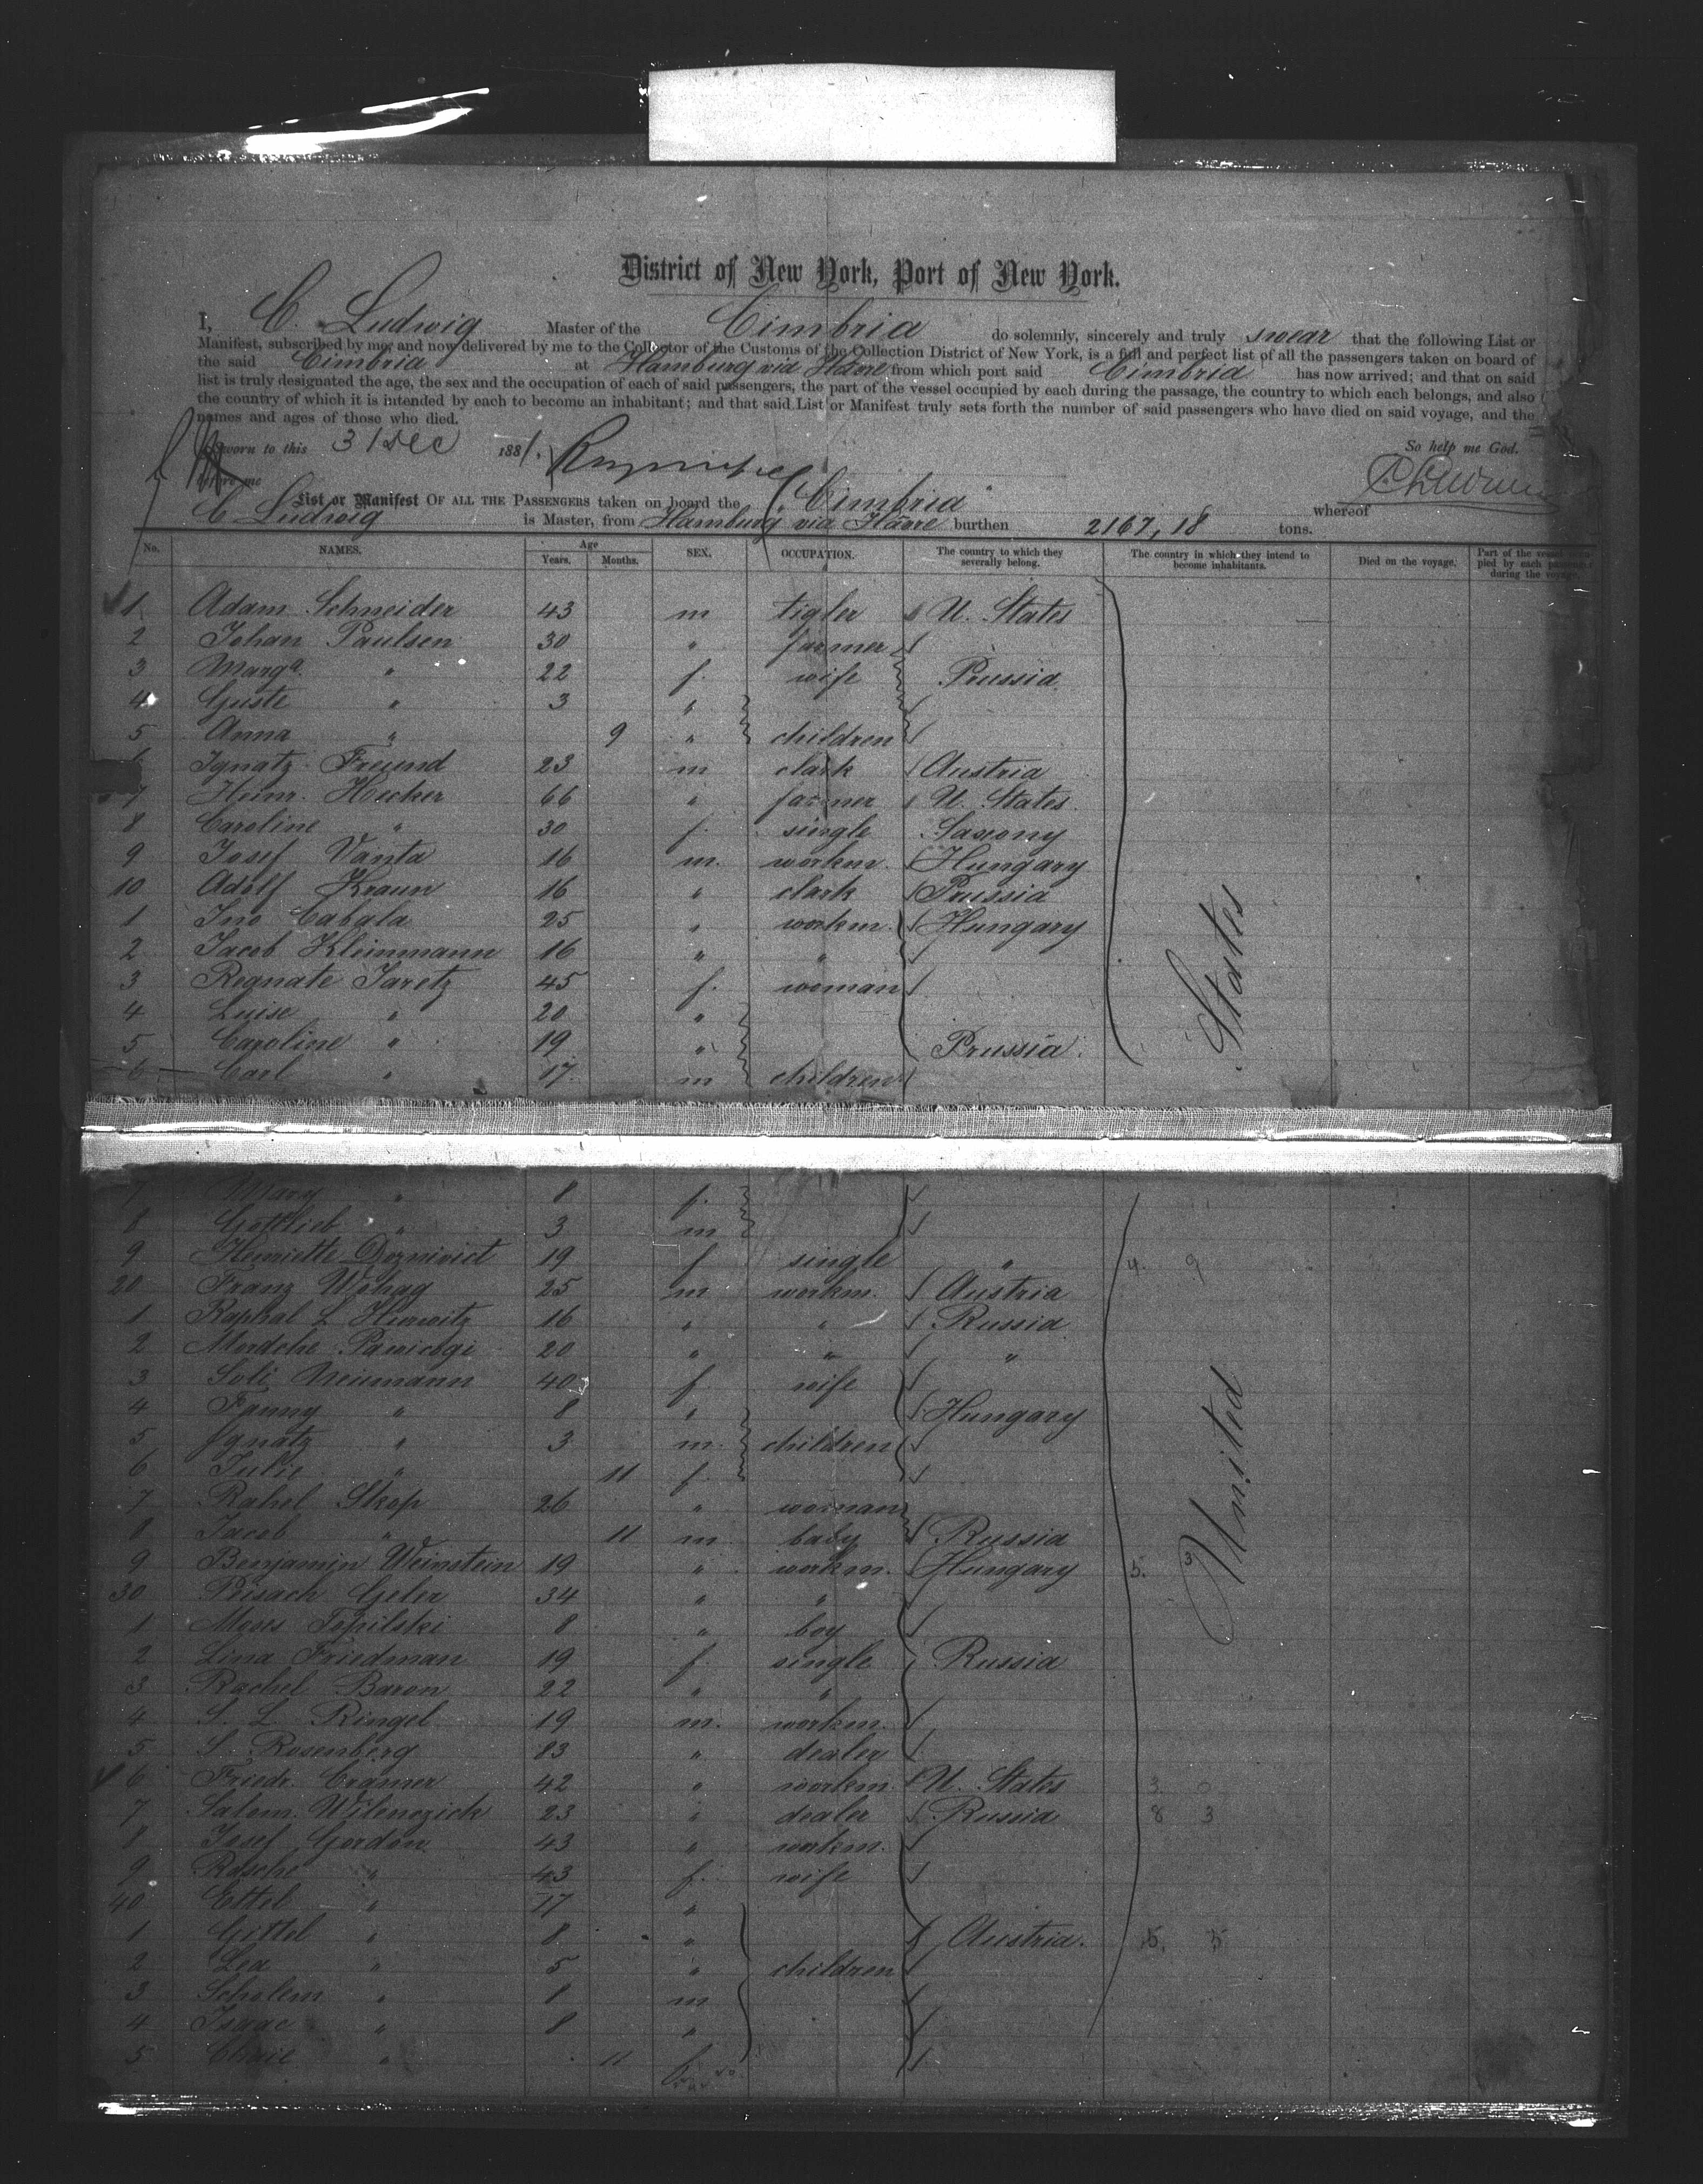 District of New York, Port of New York.
I, C. Ludwig Master of the Cimbria do solemnly, sincerely and truly swear that the following List or
Manifest, subscribed by me, and now delivered by me to the Collector of the Customs of the Collection District of New York, is a full and perfect list of all the passengers taken on board of
the said Cimbria at Hamburg via Havre from which port said Cimbria has now arrived; and that on said
list is truly designated the age, the sex and the occupation of each of said passengers, the part of the vessel occupied by each during the passage, the country to which each belongs, and also
the country of which it is intended by each to become an inhabitant; and that said List or Manifest truly sets forth the number of said passengers who have died on said voyage, and the
names and ages of those who died.
Sworn to this 31 Dec 1881. So help me God.
before me
List or Manifest OF ALL THE PASSENGERS taken on board the "Cimbria" whereof
C Ludwig is Master, from Hamburg via Havre burthen 2167,18 tons.
No. NAMES. Age Years. Months. SEX. OCCUPATION. The country to which they severally belong. The country in which they intend to become inhabitants. Died on the voyage. Part of the vessel occupied by each passenger during the voyage.
1 Adam Schneider 43 m tigler U. States
2 Johan Paulsen 30 " farmer
3 Marga. " 22 f. wife Prussia
4 Guste " 3 "
5 Anna " 9 " children
6 Ignatz Freund 23 m clark Austria
7 Heinr. Hecker 66 " farmer U. States
8 Caroline " 30 f. single Saxony
9 Josef Vanta 16 m. workm. Hungary
10 Adolf Kraun 16 " clark Prussia
1 Jno Cabala 25 " workm. Hungary
2 Jacob Kleinmann 16 " "
3 Regnate Jaretz 45 f. woman
4 Luise " 20 "
5 Caroline " 19 " Prussia.
6 Carl " 17 m children
7 Mary " 8 f.
8 Gottlieb " 3 m
9 Henriette 19 f single "
20 Franz 25 m workm. Austria
1 Raphal L Hurwitz 16 " " Russia
2 Mordche 20 " " "
3 Soli Neumann 40 f. wife
4 Fanny " 8 " Hungary
5 Ignatz " 3 m. children
6 Julie " 11 f.
7 Rahel Skop 26 " woman
8 Jacob " 11 m baby Russia
9 Benjamin Weinstein 19 " workm. Hungary
30 Pisach Geler 34 " "
1 Moses Topilski 8 " boy
2 Lina Friedman 19 f. single Russia
3 Rachel Baron 22 " "
4 S. L. Ringel 19 m. workm.
5 S. Rosenberg 83 " dealer
6 Friedr. Cramer 42 " workm. U. States
7 Salom. Wilenozick 23 " dealer Russia
8 Josef Gordon 43 " workm.
9 Rasche " 43 f. wife
40 Ettel " 17 "
1 Gittel " 8 " Austria.
2 Lea " 5 " children
3 Scholem " 8 m
4 Isaac " 8 "
5 " 11 f.
United States